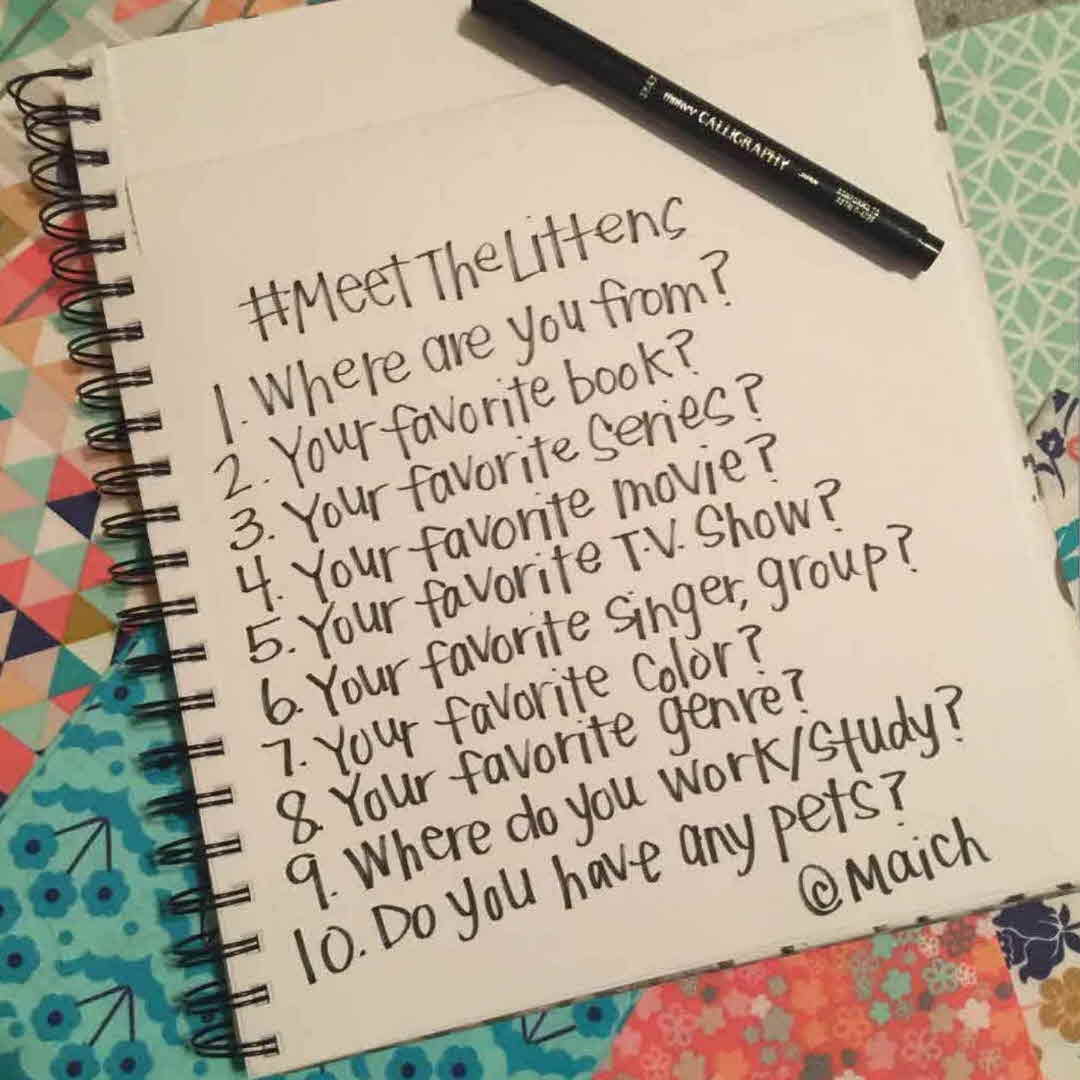 marvy CALLIGRAPHY
#MeetTheLittens
1. Where are you from?
2. Your favorite book?
3. Your favorite Series?
4. Your favorite movie?
5. Your favorite T.V. Show?
6. Your favorite singer, group?
7. Your favorite Color?
8. Your favorite genre?
9. Where do you work/study?
10. Do you have any pets?
©Maich